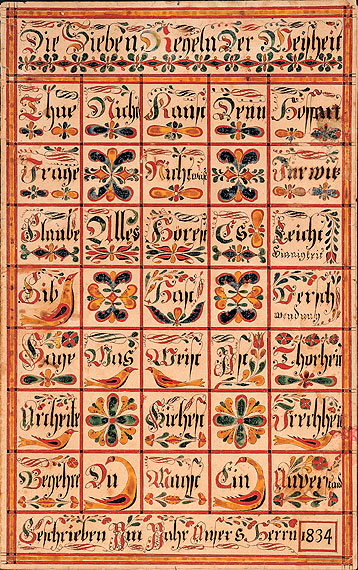 Die Sieben Regeln Der Weyheit
Thue Nicht Kanst Denn Hoffart
Frage Nicht was
Glaube Alles Hörest Es Leicht
Sinnigkeit
Gib Hast Versch
wendung
Sage Was Weist Ist Thorheit
Urtheile Siehest Frechheit
Begehre Du Ein Unverstand
Geschrieben Im Jahr Unser s Herrn 1834